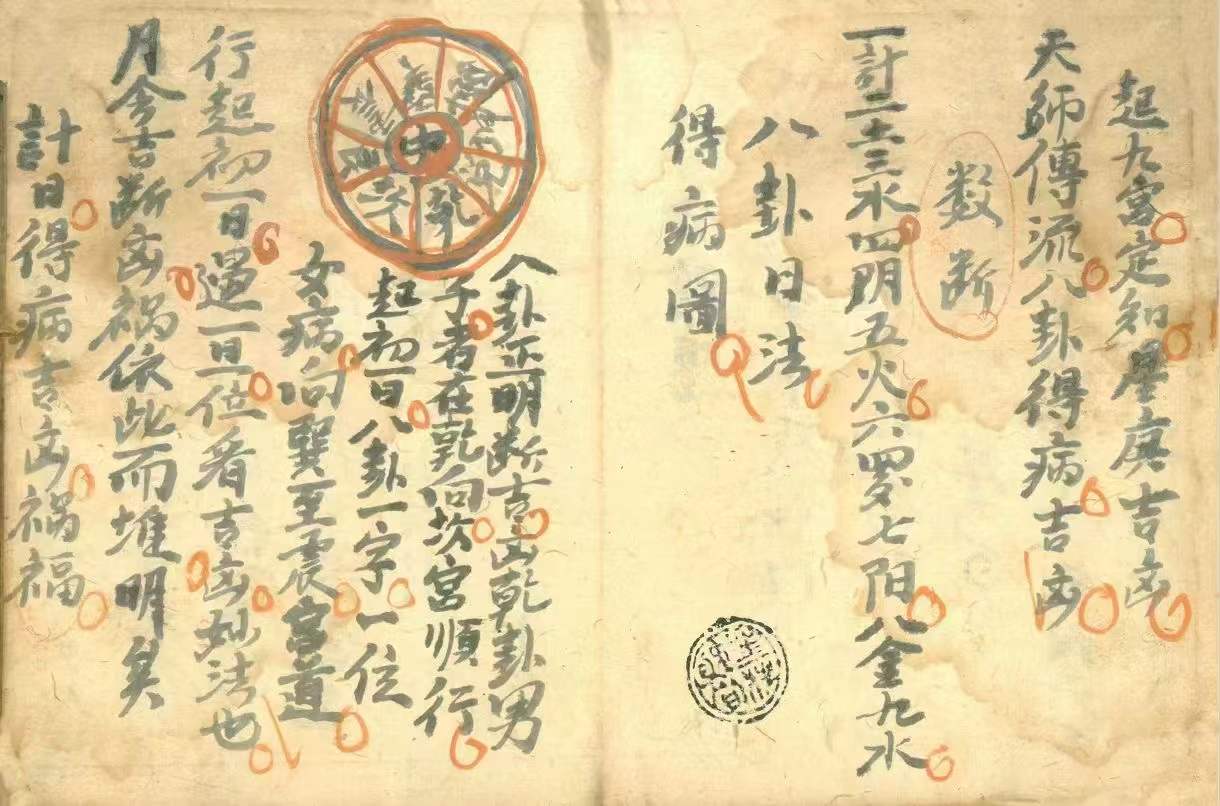 起九宮定知星庚吉凶
天師傳流八卦得病吉凶
数断
一計二土三水四朋五火六罗七阳八金九水
八卦日法
得病圖
中
乾
八卦正明断吉凶乾卦男
子者在乾向坎宮順行
起初一日八卦一字一位
女病向巽至震宮道
行起初一日過一日一位看吉凶妙法也
月令吉断凶禍依此而堆明矣
計日得病吉凶禍福